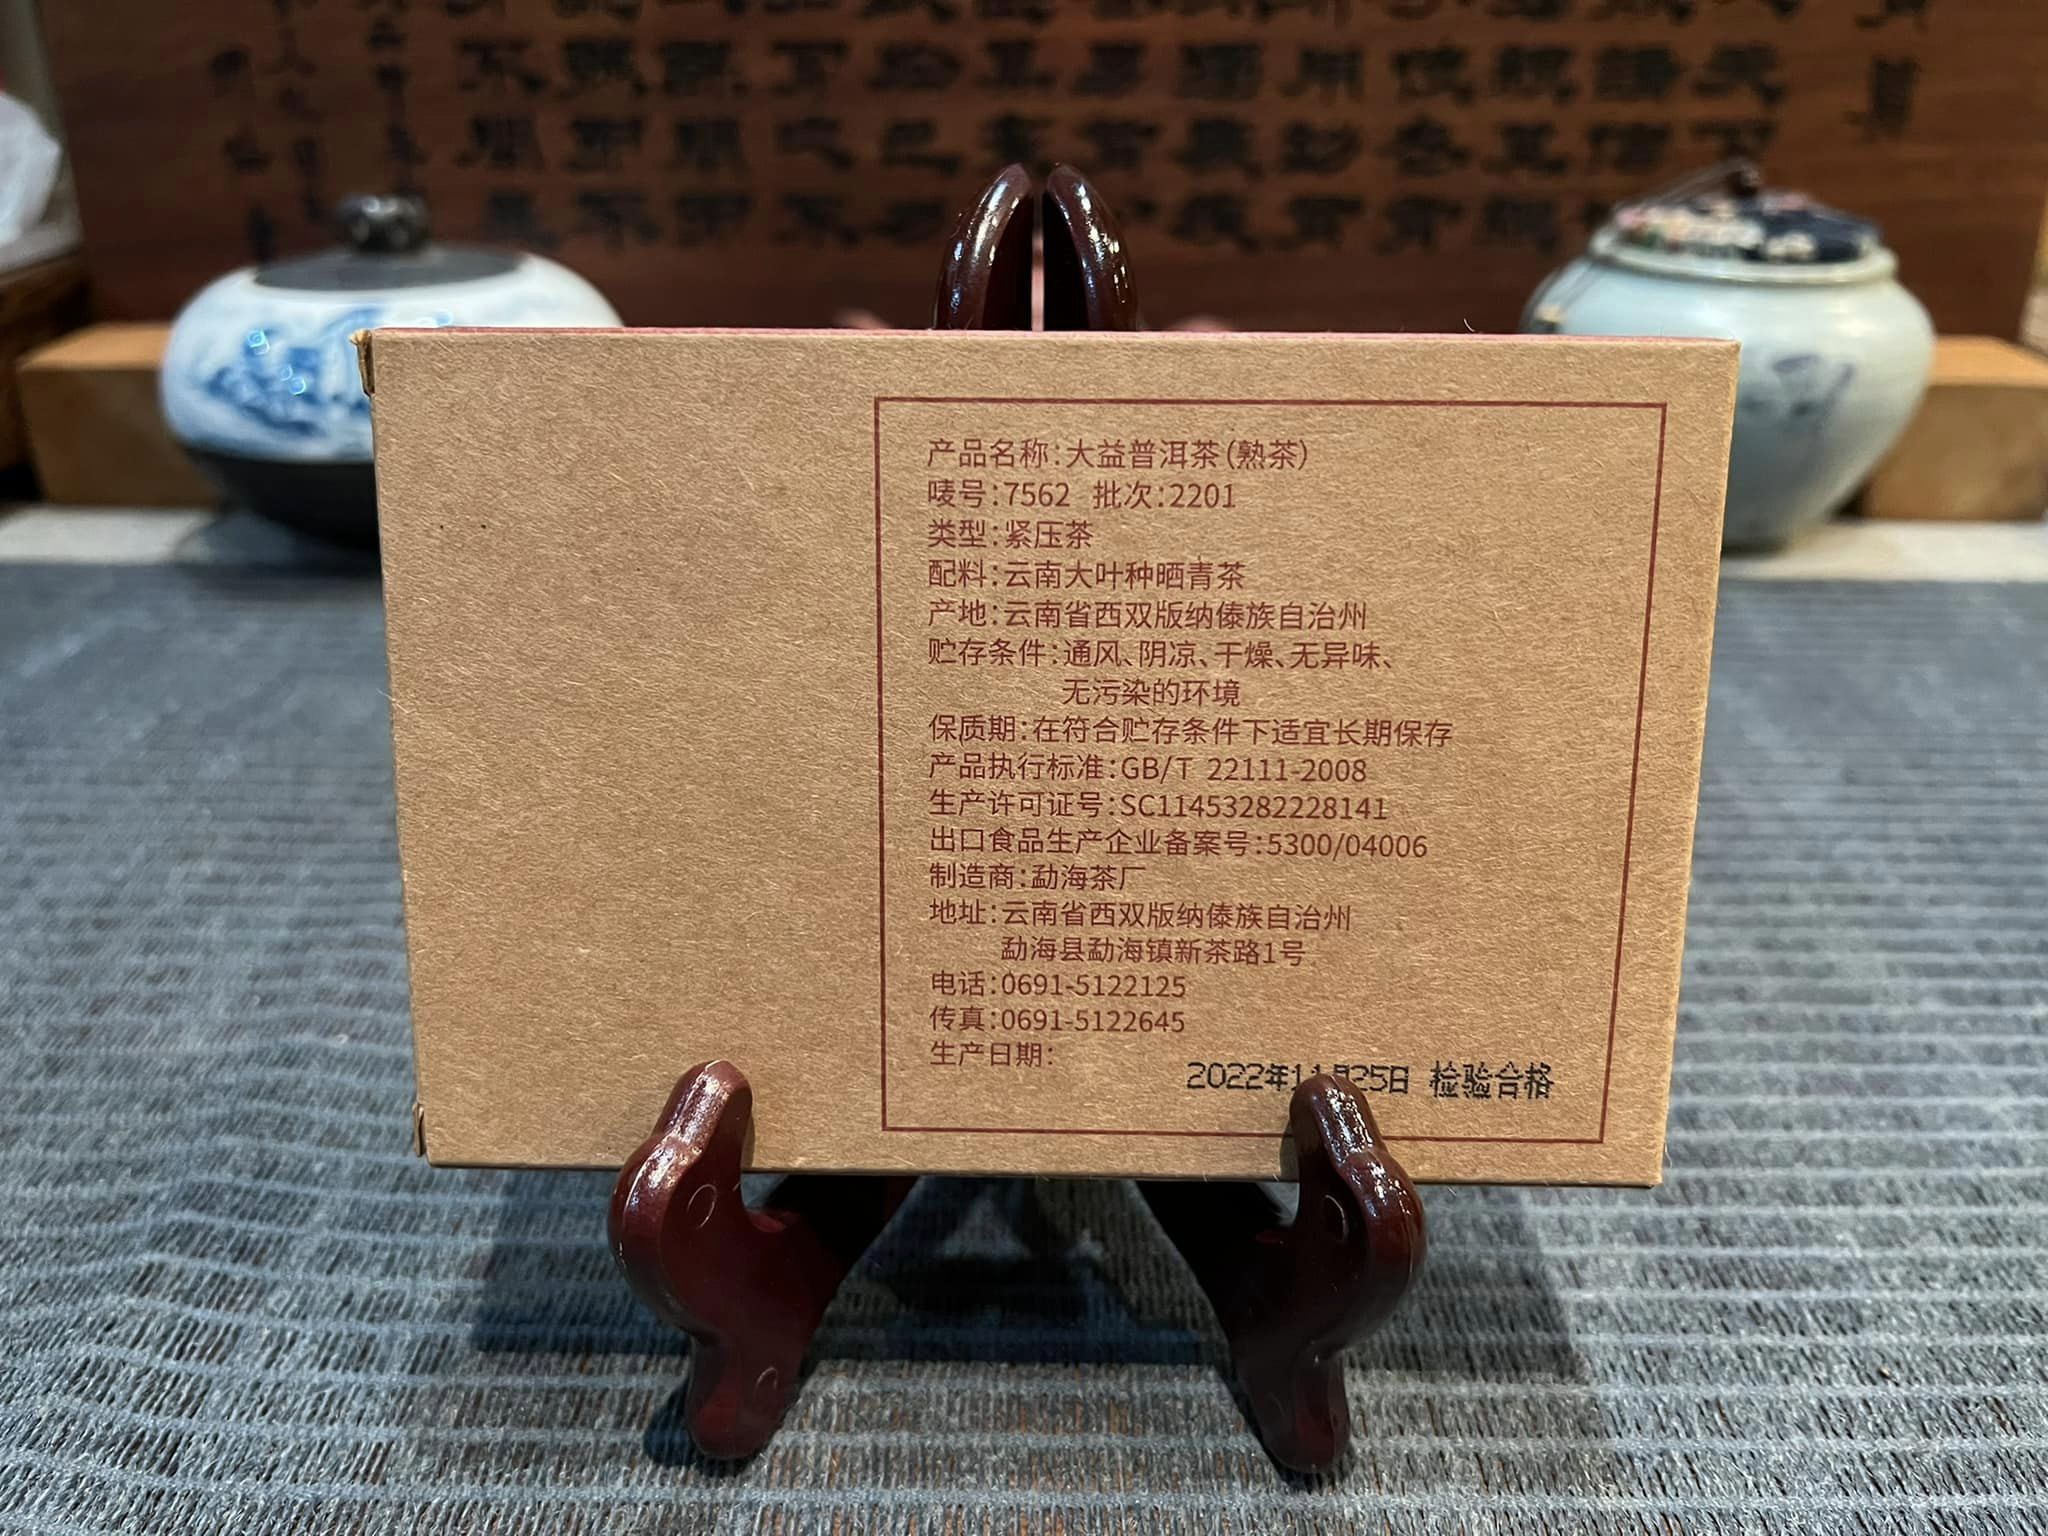 产品名称：大益普洱茶（熟茶）
唛号：7562 批次：2201
类型：紧压茶
配料：云南大叶种晒青茶
产地：云南省西双版纳傣族自治州
贮存条件：通风、阴凉、干燥、无异味、
无污染的环境
保质期：在符合贮存条件下适宜长期保存
产品执行标准：GB/T 22111-2008
生产许可证号：SC11453282228141
出口食品生产企业备案号：5300/04006
制造商：勐海茶厂
地址：云南省西双版纳傣族自治州
勐海县勐海镇新茶路1号
电话：0691-5122125
传真：0691-5122645
生产日期：
2022年11月25日 检验合格